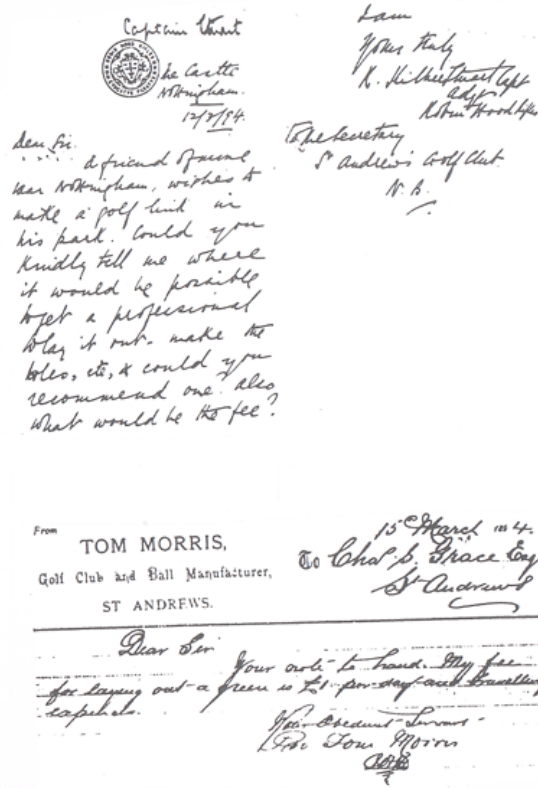 Captain Stuart
The Castle
Nottingham.
12/3/94.
Dear Sir.
A friend of mine
near Nottingham, wishes to
make a golf link in
his park. Could you
kindly tell me where
it would be possible
to get a professional
to lay it out - make the
holes, etc, & could you
recommend one. also
what would be the fee?
I am
Yours truly
Stuart Capt
adjt
Robin Hood Rifles
To the Secretary
St Andrews Golf Club.
N. B.
From
TOM MORRIS,
Golf Club and Ball Manufacturer,
ST ANDREWS.
15 March 1894.
To Chas. S. Grace Esq
St Andrews
Dear Sir
Your note to hand. My fee
for laying out a green is £1 per day and travelling
expenses.
Your Obedient Servant
Pro Tom Morris